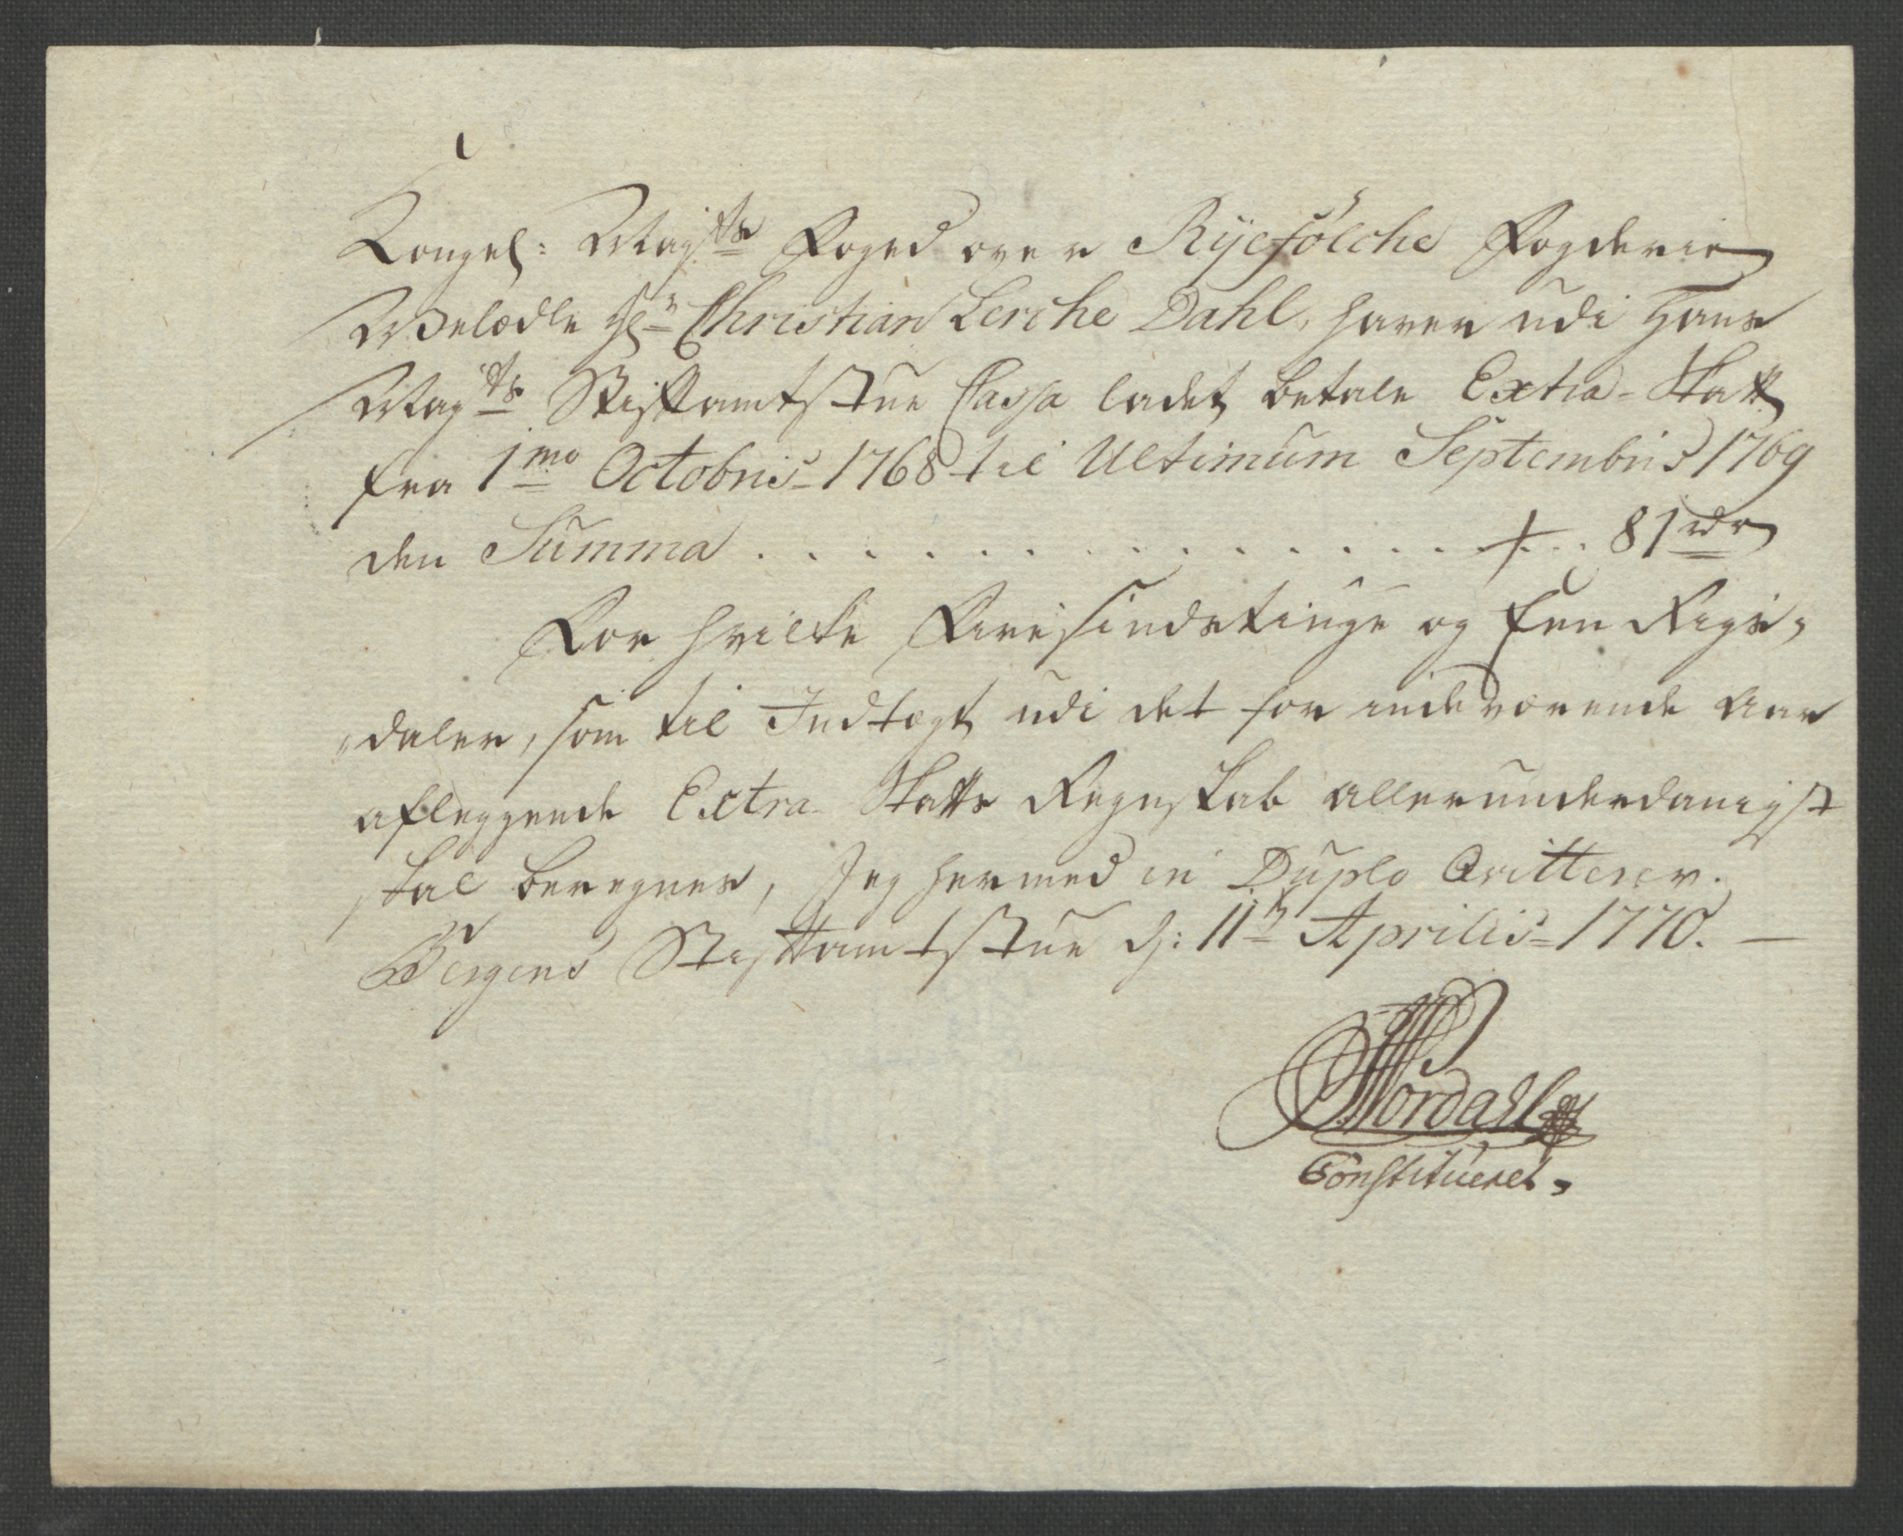 Kongel: Mayts Foged over Ryefølche Fogderie
Welædle Hr Christian Lerche Dahl, haver udi Hans
Mayts Stiftamtstue Cassa ladet betale Extra-Skatt
fra 1mo Octobris 1768 til Ultimum Septembris 1769
den Summa . . . . . . . . . . . . . . . . 81 rdr
For hvilke Firesindstiuge og Een Rigs-
daler, som til Indtægt udi det for indeværende Aar
aflæggende Extra Skatts Regnskab allerunderdanigst
skal beregnes, Jeg hermed in Duplo Qvitterer.
Bergens Stiftamtstue d: 11te Aprilis 1770. —
Nordahl
Constitueret.